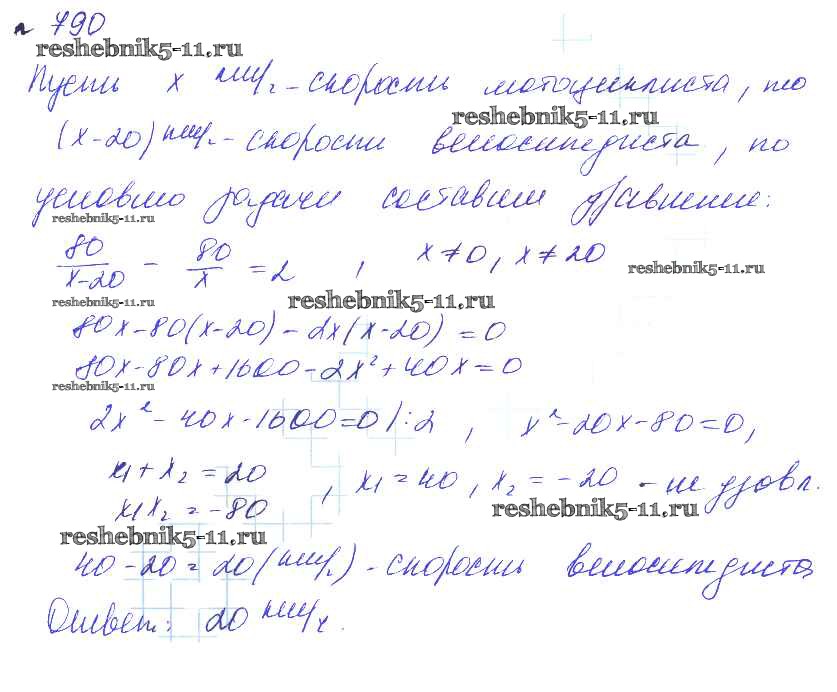 № 790
reshebnik5-11.ru
Пусть x км/ч - скорость мотоциклиста, то
reshebnik5-11.ru
(x-20) км/ч - скорость велосипедиста, по
условию задачи составим уравнение:
reshebnik5-11.ru
80/(x-20) - 80/x = 2 , x≠0, x≠20
reshebnik5-11.ru
reshebnik5-11.ru reshebnik5-11.ru
80x-80(x-20)-2x(x-20)=0
80x-80x+1600-2x²+40x=0
reshebnik5-11.ru
2x²-40x-1600=0/:2 , x²-20x-80=0,
x₁+x₂=20
x₁x₂=-80 , x₁=40, x₂=-20 - не удовл.
reshebnik5-11.ru
reshebnik5-11.ru
40-20=20(км/ч) - скорость велосипедиста
Ответ: 20 км/ч.